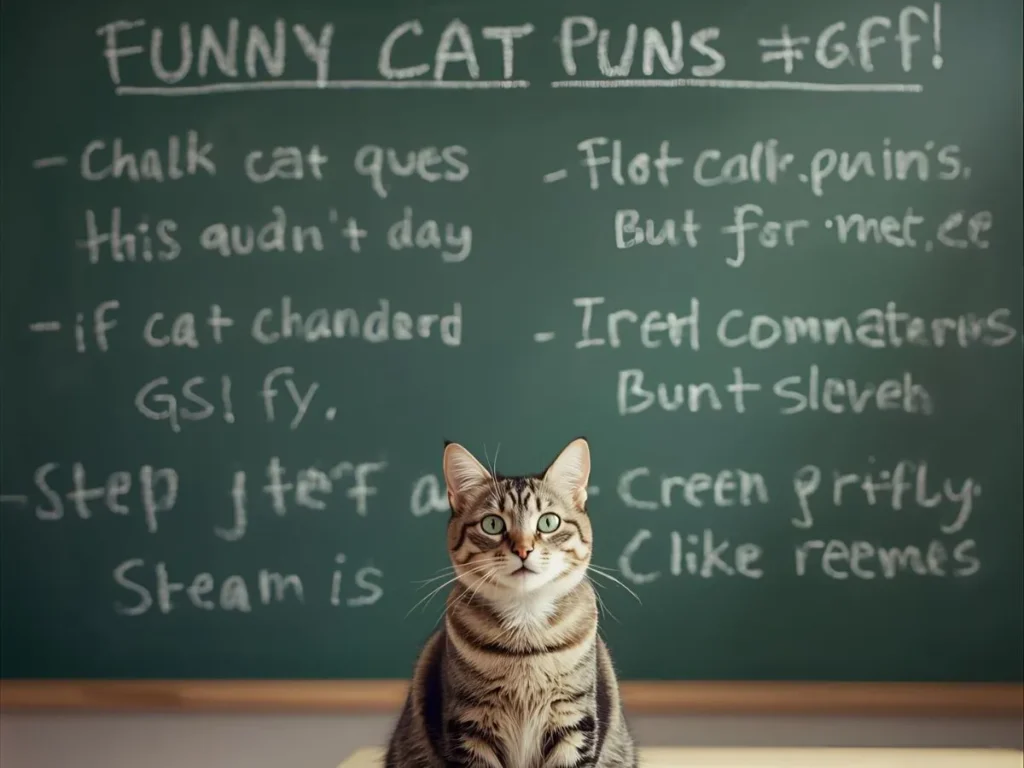 FUNNY CAT PUNS #GFF!
- Chalk cat ques
this qudn't day
- if cat chanderd
GS! fy.
- Step jterf a
Steam is
- Flot calk.punin's.
But for ·met,ce
- Iretl comnaterns
Bunt sleveh
- Creen priffly.
Clike reemes